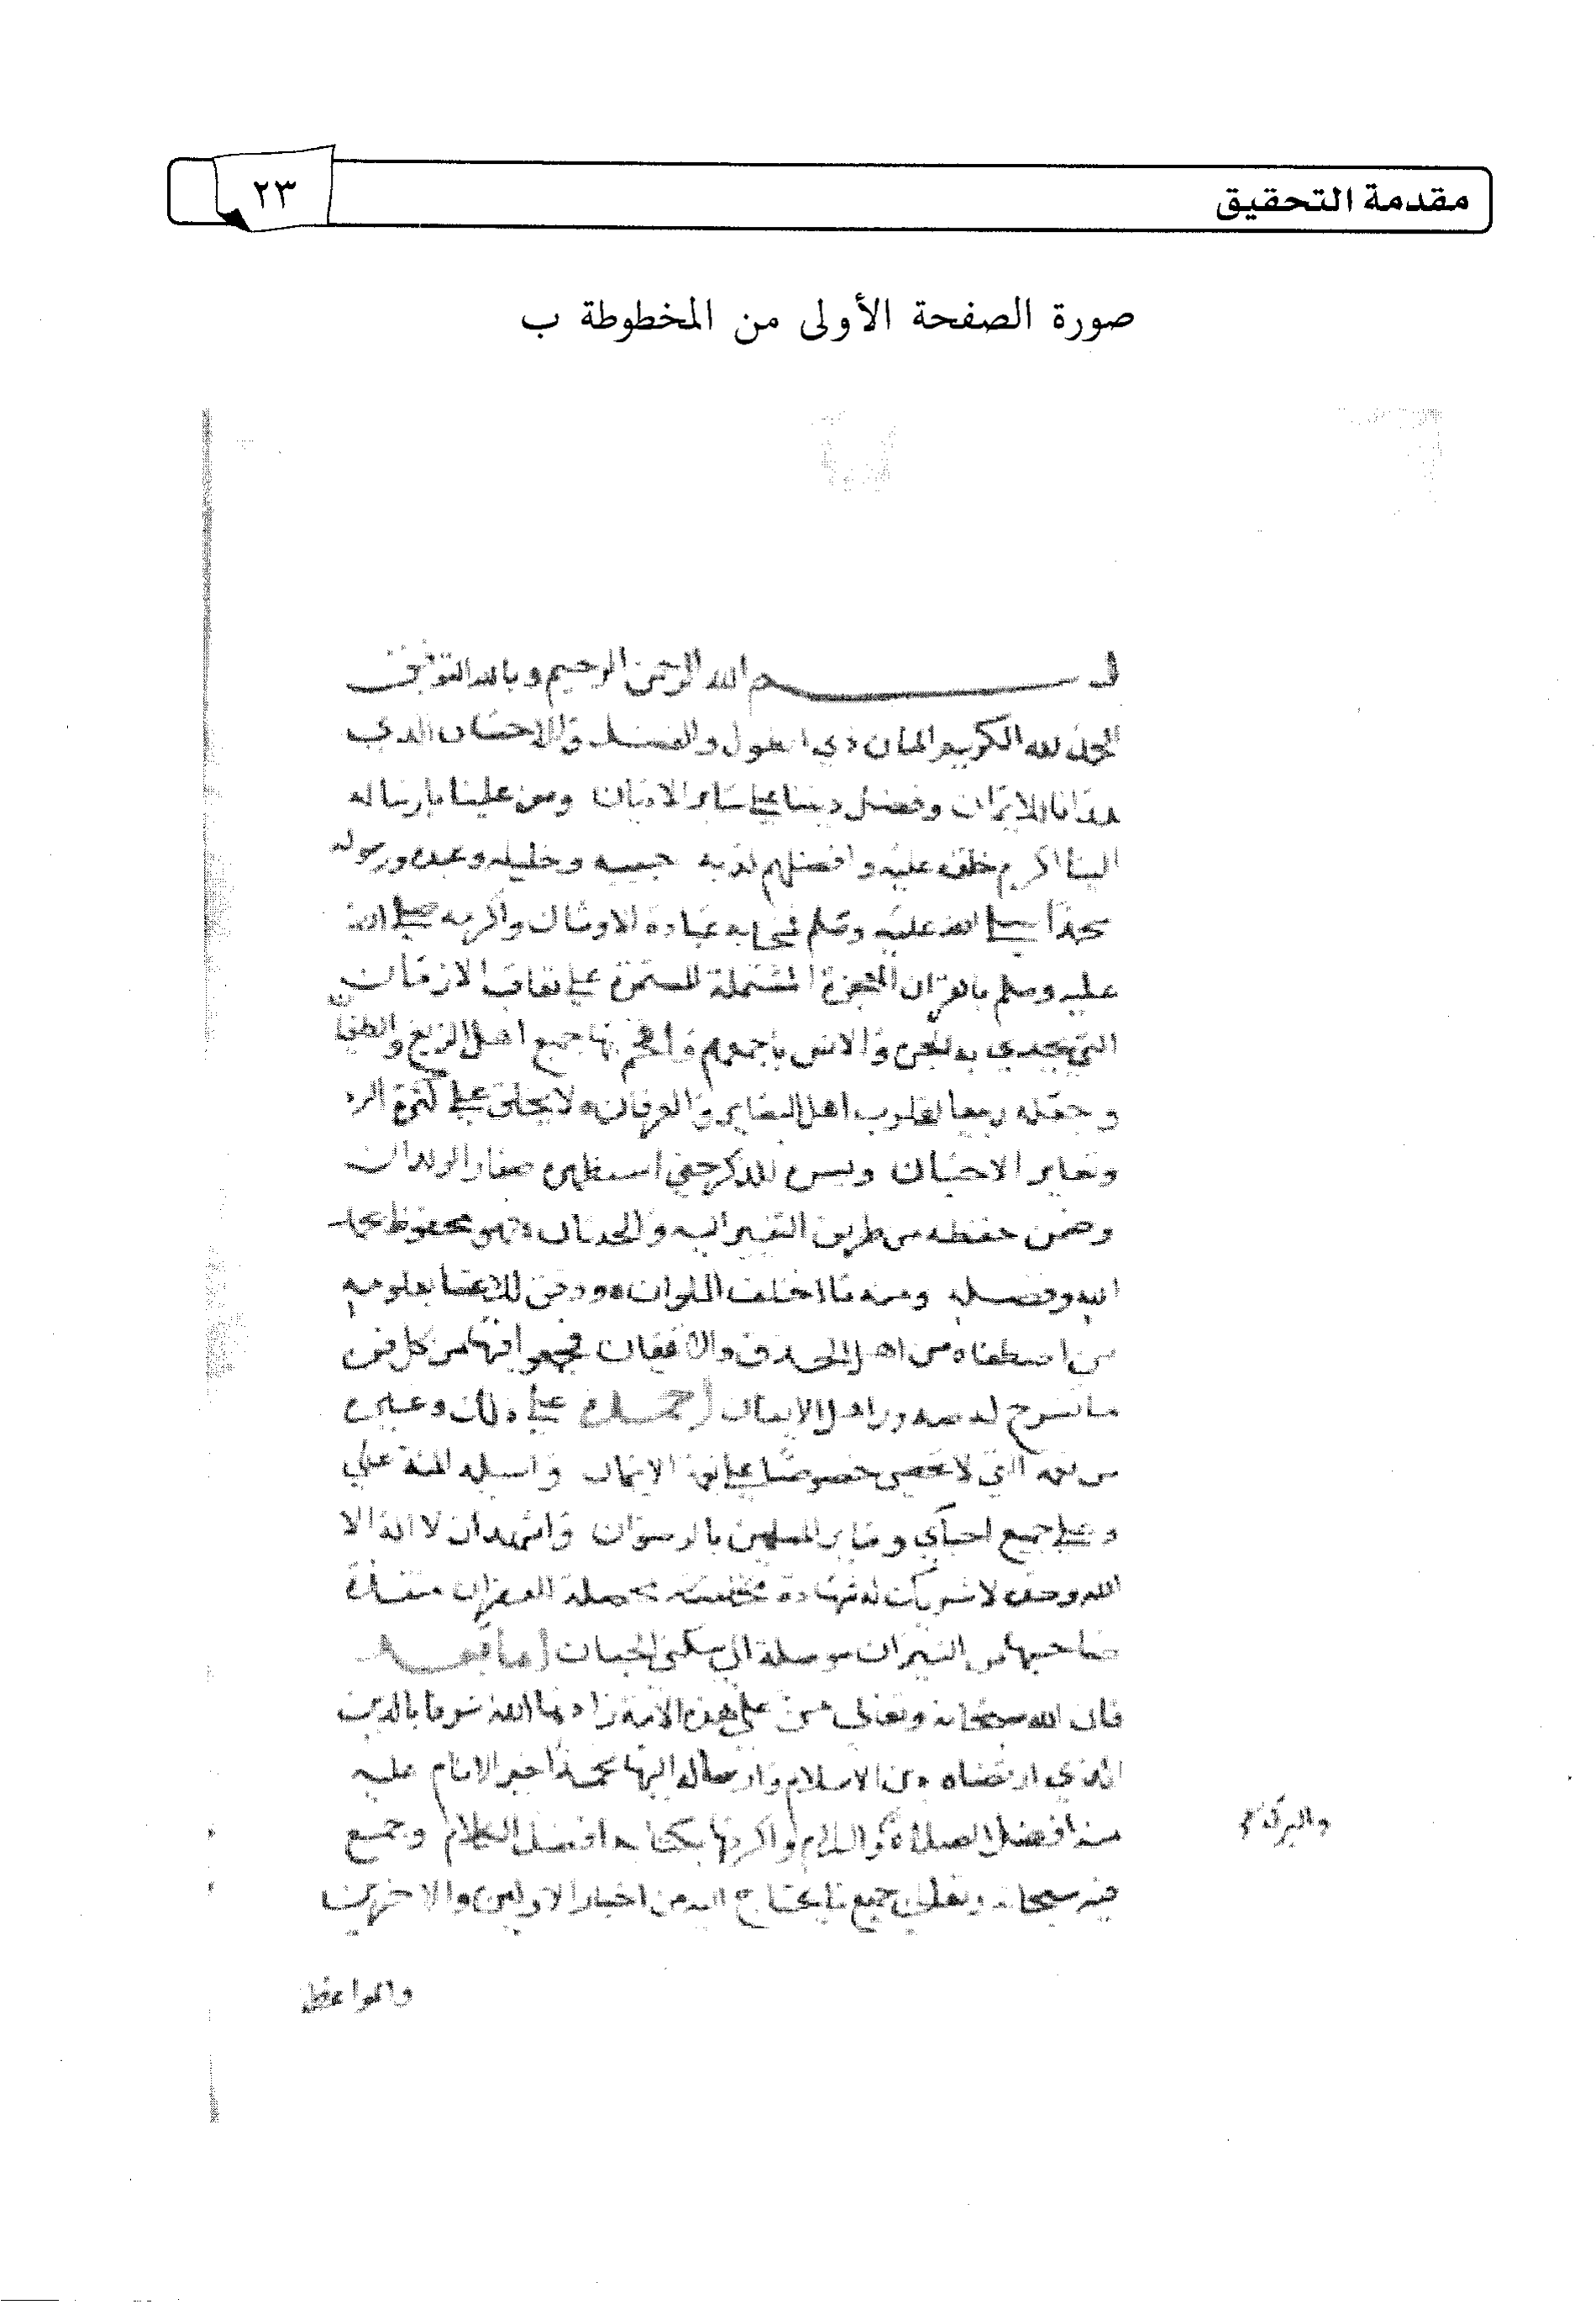 مقدمة التحقيق
٢٣
صورة الصفحة الأولى من المخطوطة ب
بسم الله الرحمن الرحيم وبالله التوفيق
الحمد لله الكريم المنان ذي الطول والفضل والاحسان الذي
هدانا للايمان وفضل ديننا على سائر الاديان ومن علينا بارساله
الينا اكرم خلقه عليه وافضلهم لديه حبيبه وخليله وعبده ورسوله
محمدا صلى الله عليه وسلم فمحى به عبادة الاوثان واكرمه صلى الله
عليه وسلم بالقران المعجزة المستمرة على تعاقب الازمان
التي يتحدى به الجن والانس باجمعهم وافحم بها جميع اهل الزيغ والطغيان
وجعله ربيعا لقلوب اهل البصاير والعرفان لا يخلق على كثرة الرد
وتغاير الاحيان ويسره للذكر حتى استظهره صغار الولدان
وضمن حفظه من طريق التغير اليه والحدثان فهو محفوظ بحمد
الله وفضله ومنه ما اختلف الملوان ووفق للاعتنا بعلومه
من اصطفاه من اهل الحذق والاتقان فجمعوا فيها من كل فن
ما ينشرح له صدور اهل الايقان احمده على ذلك وغيره
من نعمه التي لا تحصى خصوصا على نعمة الايمان واسله المنة علي
وعلى جميع احبابي وساير المسلمين بالرضوان واشهد ان لا اله الا
الله وحده لا شريك له شهادة محصلة للغفران منقذة
صاحبها من النيران موصلة الى سكنى الجنان اما بعد
فان الله سبحانه وتعالى من على هذه الامة زادها الله شرفا بالدين
الذي ارتضاه دين الاسلام وارساله اليها محمدا خير الانام عليه
منه افضل الصلاة والسلام واكرمها بكتابه افضل الكلام وجمع
والبركات
فيه سبحانه وتعالى جميع ما يحتاج اليه من اخبار الاولين والاخرين
والمواعظ